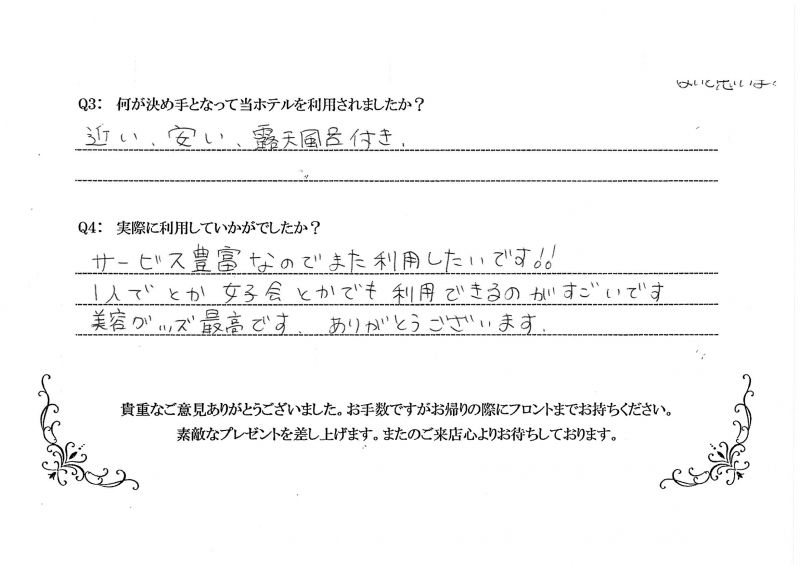 Q3： 何が決め手となって当ホテルを利用されましたか？
近い、安い、露天風呂付き.
Q4： 実際に利用していかがでしたか？
サービス豊富なのでまた利用したいです!!
1人でとか女子会とかでも利用できるのがすごいです
美容グッズ最高です、ありがとうございます.
貴重なご意見ありがとうございました。お手数ですがお帰りの際にフロントまでお持ちください。
素敵なプレゼントを差し上げます。またのご来店心よりお待ちしております。